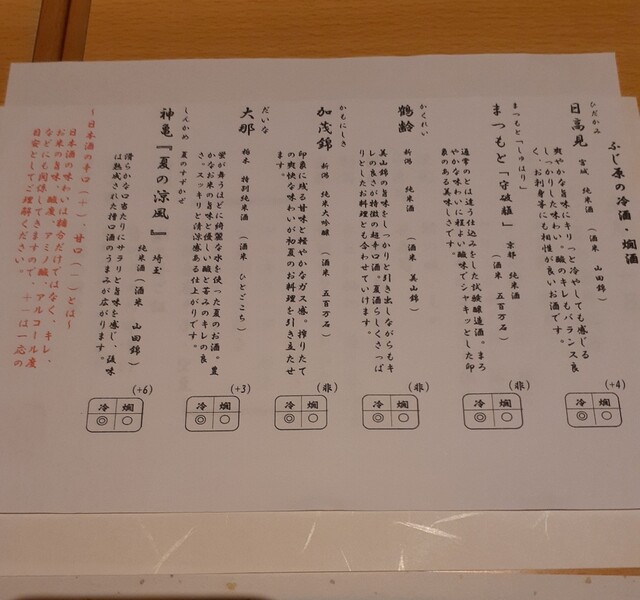 ふじ原の冷酒・燗酒
ひだかみ
日高見
宮城 純米酒 (酒米 山田錦)
爽やかな旨味にキリっと冷やしても感じる
しっかりした味わい。酸のキレもバランス良
く、お刺身等にも相性が良いお酒です。
(+4)
冷 燗
◎ ○
まつもと「しゅはり」
まつもと「守破離」
京都 純米酒
(酒米 五百万石)
通常のとは違う仕込みをした試験醸造酒。まろ
やかな味わいに程よい酸味でシャキッとした印
象のある美味しさです。
(非)
冷 燗
◎ ○
かくれい
鶴齢
新潟 純米酒 (酒米 美山錦)
美山錦の旨味をしっかりと引き出しながらもキ
レの良さが特徴の超辛口酒。夏酒らしくさっぱ
りとしたお料理とも合わせていけます。
(非)
冷 燗
◎ ○
かもにしき
加茂錦
新潟 純米大吟醸 (酒米 五百万石)
印象に残る甘味と軽やかなガス感。搾りたて
の爽快な味わいが初夏のお料理を引き立たせ
ます。
(非)
冷 燗
◎ ○
だいな
大那
栃木 特別純米酒 (酒米 ひとごこち)
蛍が舞うほどに綺麗な水を使った夏のお酒。豊
かなお米の旨味と優しい酸と苦みのキレの良
さ。スッキリと清涼感ある仕上がりです。
(+3)
冷 燗
◎ ○
しんかめ 夏のすずかぜ
神亀『夏の涼風』
埼玉
純米酒 (酒米 山田錦)
滑らかな口当たりにサラリと旨味を感じ、後味
は熟成された辛口酒のうまみが広がります。
(+6)
冷 燗
◎ ○
～日本酒の辛口(+)、甘口(－)とは～
日本酒の味わいは糖分だけではなく、キレ、
お米の旨味、酸度、アミノ酸、アルコール度
などにも関係してきますので、+－は一応の
目安としてご理解ください。